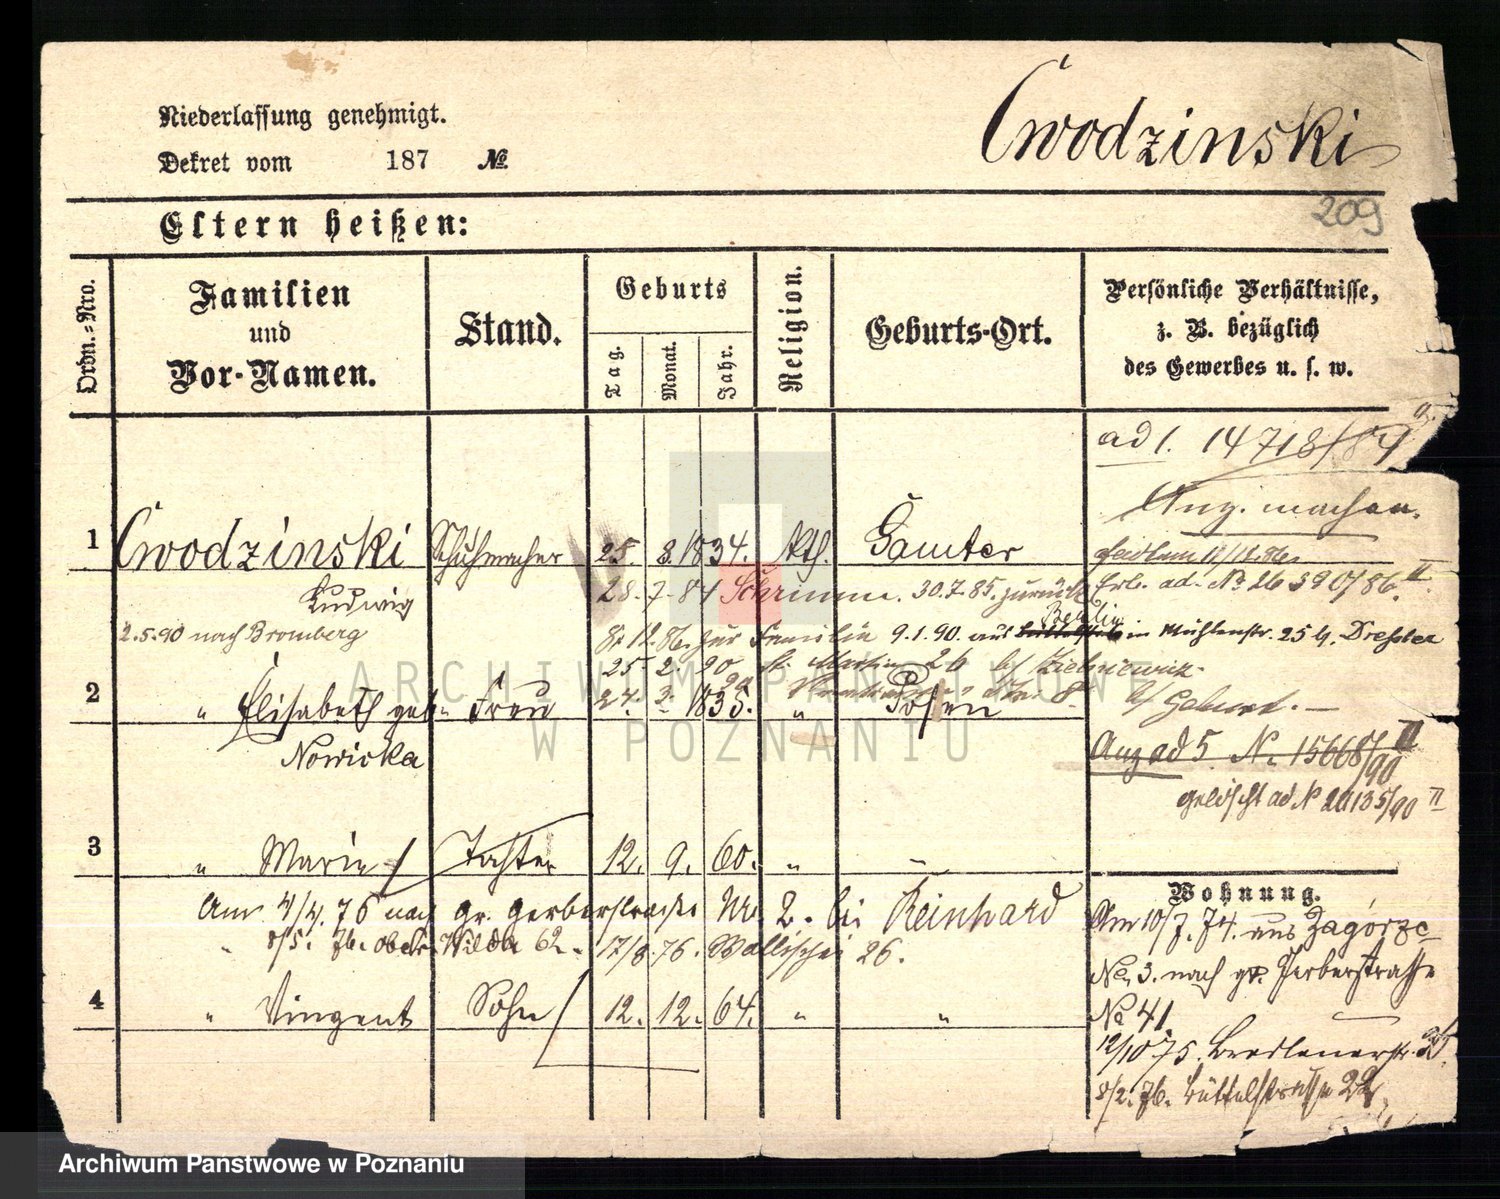 Niederlassung genehmigt.
Dekret vom 187 №
Cwodzinski
209
Eltern heißen:
Ordn.-Nro.
Familien und Vor-Namen.
Stand.
Geburts
Tag.
Monat.
Jahr.
Religion.
Geburts-Ort.
Persönliche Verhältnisse,
z. B. bezüglich
des Gewerbes u. s. w.
ad 1. 14718/84
Anz. machen.
1 Cwodzinski Schuhmacher 25. 8. 1834. Kth. Samter
Ludwig
28.7.84 Schrimm. 30.7.85. zurück Erl. ad. No 26390/86. II
2.5.90 nach Bromberg
8.12.86. zur Familie 9.1.90. aus Berlin in Mühlenstr. 25 b/ Drexler
25. 2. 90 St. Martin 26 b/
2 " Elisabeth geb. Frau 24. 3. 1835. " Posen
Nowicka
Anz ad 5. No 15668/90 II
gelöscht ad N 20135/90 II
3 " Marie Tochter 12. 9. 60. "
Am 4/4. 76 nach gr. Gerberstrasse No. 2. bei Reinhard
" 8/5. 76. Ober Wilda 62. 17/8.76. Wallischei 26.
4 " Vinzent Sohn 12. 12. 64. " "
Wohnung.
Am 10/7. 74. aus Zagórze
No 3. nach gr. Gerberstrasse
No 41.
12/10 75. Breslauerstr.
8/2. 76. Büttelstrasse 22
ARCHIWUM PAŃSTWOWE
W POZNANIU
Archiwum Państwowe w Poznaniu